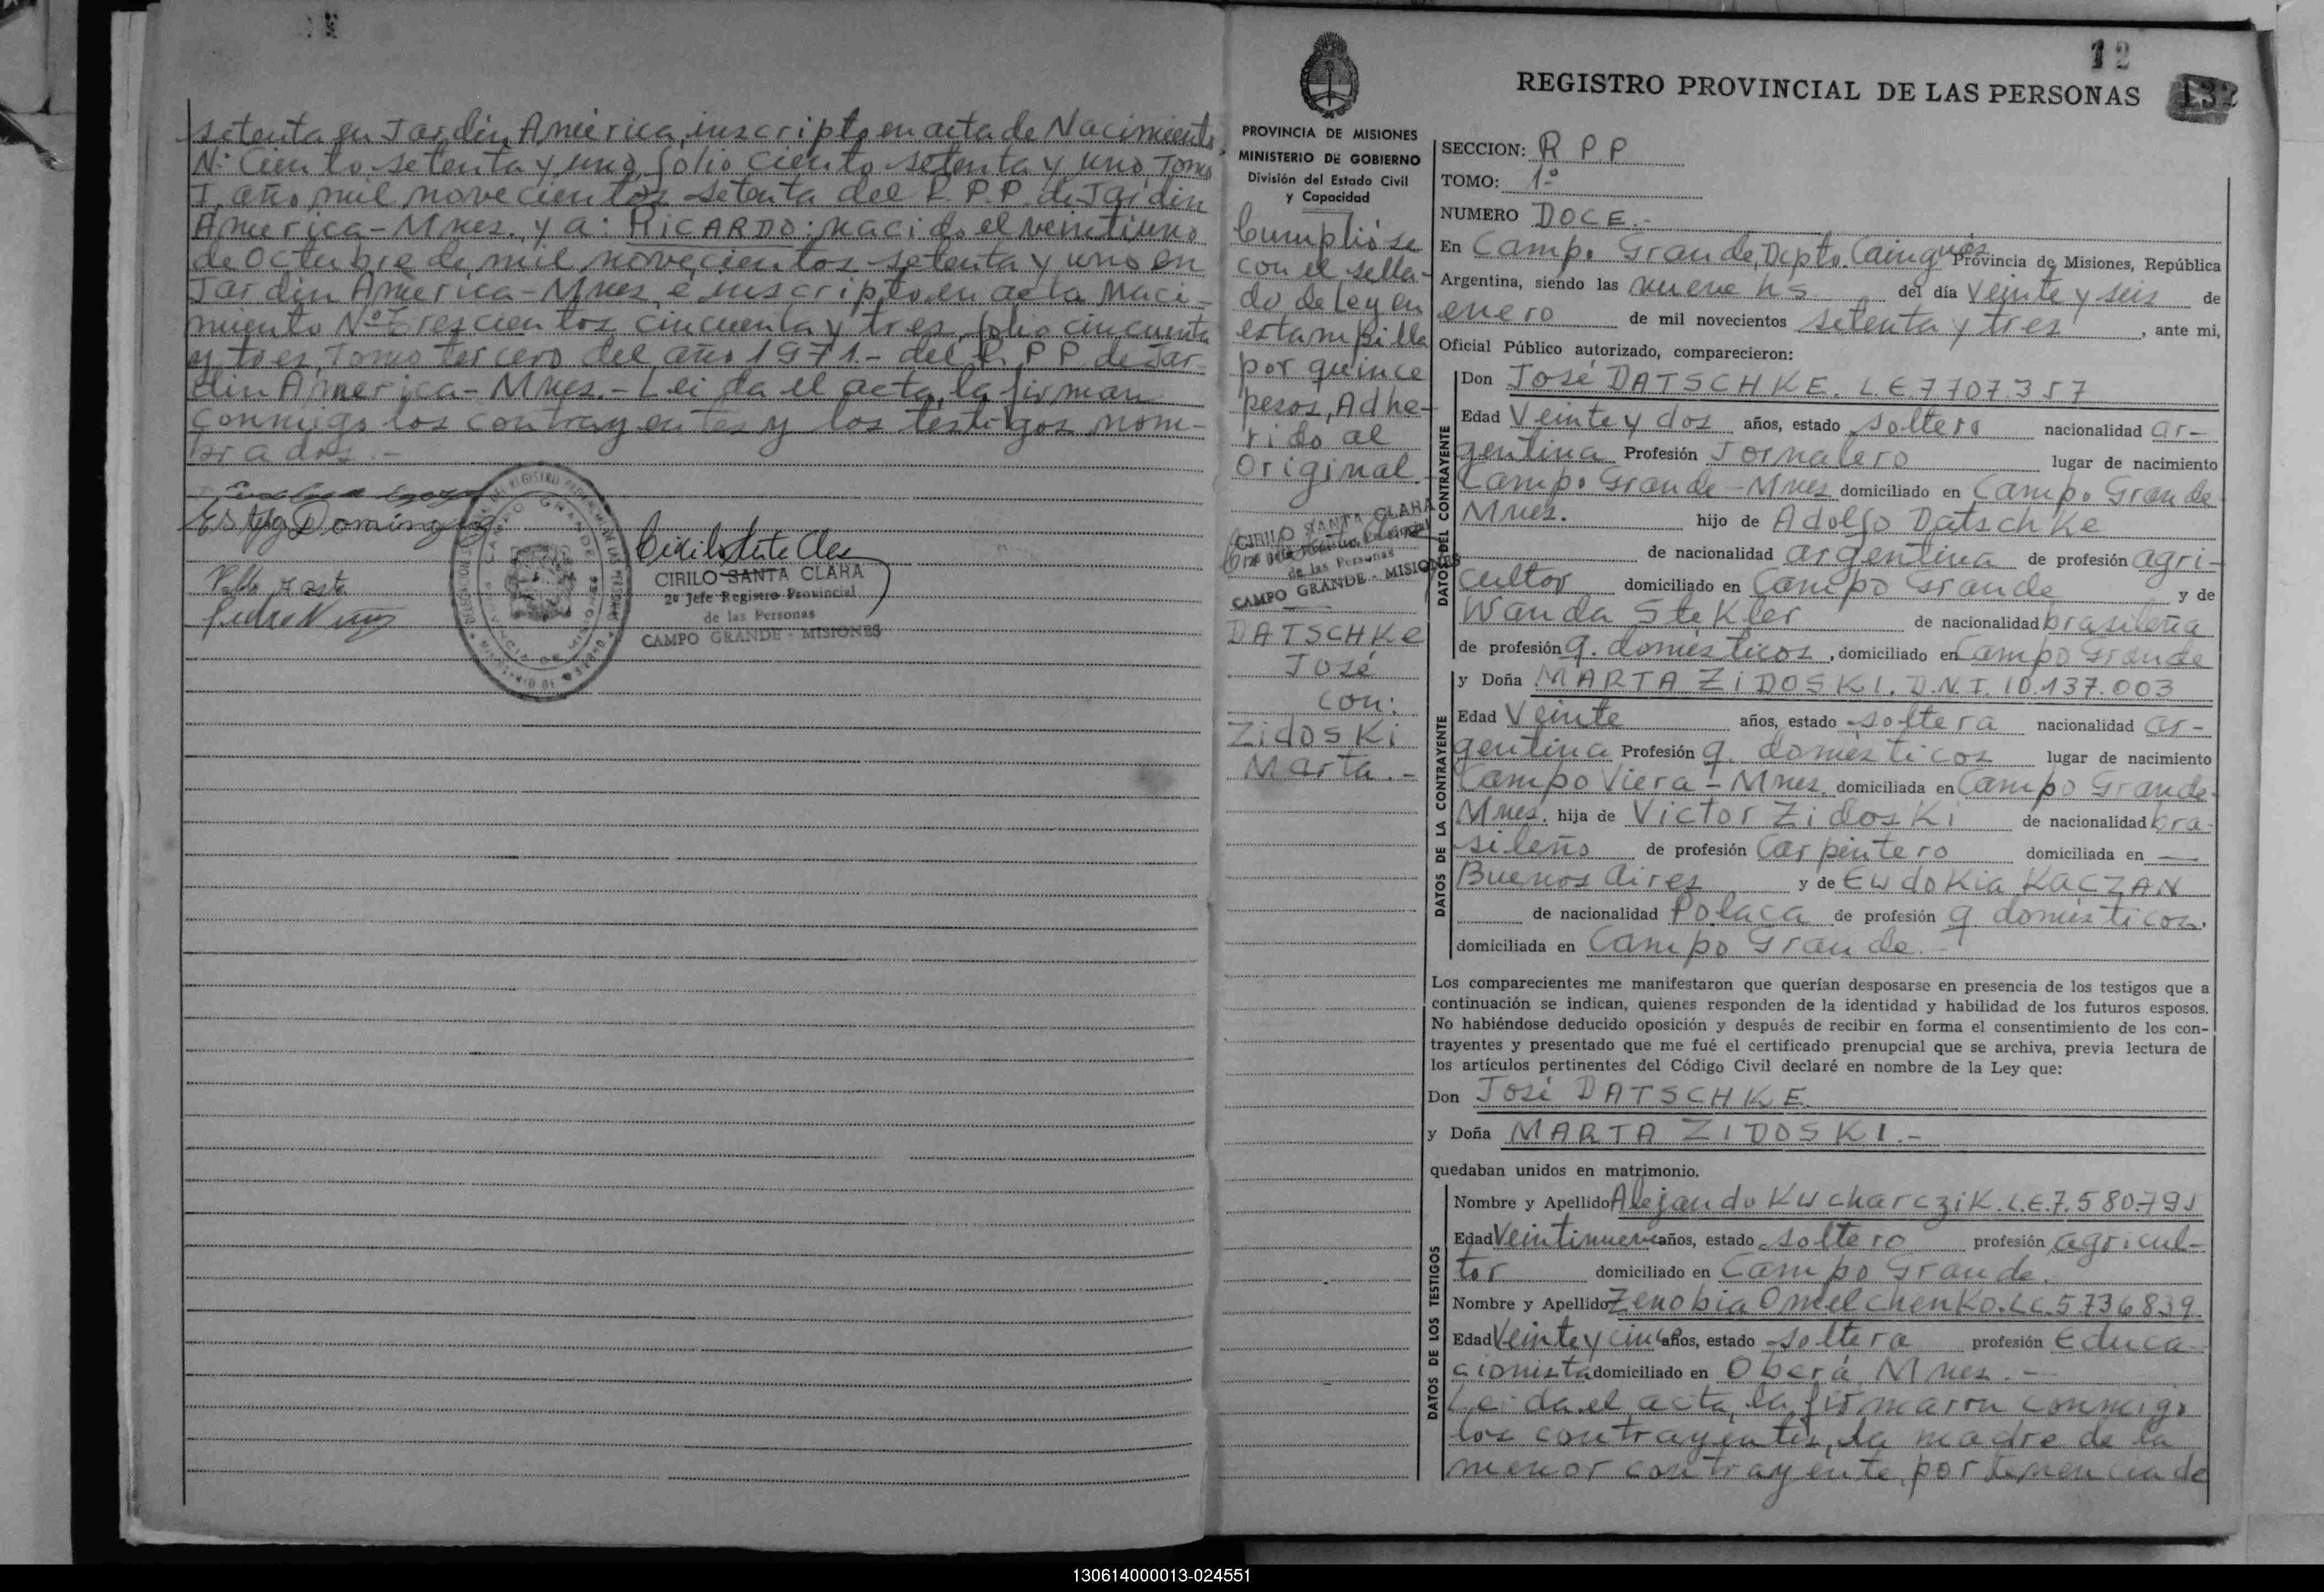 setenta en Jardin América, inscripto en acta de Nacimiento
Nº Ciento setenta y uno, folio ciento setenta y uno, Tomo
I, año mil novecientos setenta del R.P.P. de Jardin
America - Mnes. y a: RICARDO: nacido el veintiuno
de Octubre de mil novecientos setenta y uno en
Jardin América - Mnes, e inscripto en acta Naci-
miento Nº Trescientos cincuenta y tres, folio cincuenta
y tres, Tomo tercero del año 1971.- del R.P.P. de Jar-
din America - Mnes. - Leida el acta, la firman
conmigo los contrayentes y los testigos nom-
brados.-
CIRILO SANTA CLARA
2º Jefe Registro Provincial
de las Personas
CAMPO GRANDE - MISIONES
12
REGISTRO PROVINCIAL DE LAS PERSONAS
132
PROVINCIA DE MISIONES
MINISTERIO DE GOBIERNO
División del Estado Civil
y Capacidad
Cumplió se
con el sella-
do de Ley en
estampilla
por quince
pesos, Adhe-
rido al
Original.
CIRILO SANTA CLARA
2º Jefe Registro Provincial
de las Personas
CAMPO GRANDE - MISIONES
DATSCHKE
José
con:
Zidoski
Marta.-
SECCION: R P P
TOMO: 1º
NUMERO DOCE.-
En Campo Grande, Dpto. Cainguás Provincia de Misiones, República
Argentina, siendo las nueve hs del día Veinte y seis de
enero de mil novecientos setenta y tres, ante mi,
Oficial Público autorizado, comparecieron:
DATOS DEL CONTRAYENTE
Don José DATSCHKE. L.E. 7707.357
Edad Veinte y dos años, estado soltero nacionalidad ar-
gentina Profesión Jornalero lugar de nacimiento
Campo Grande - Mnes domiciliado en Campo Grande
Mnes. hijo de Adolfo Datschke
de nacionalidad argentina de profesión agri-
cultor domiciliado en Campo Grande y de
Wanda Stekler de nacionalidad brasileña
de profesión q. domésticos, domiciliado en Campo Grande
DATOS DE LA CONTRAYENTE
y Doña MARTA ZIDOSKI. D.N.I. 10.137.003
Edad Veinte años, estado soltera nacionalidad ar-
gentina Profesión q. domésticos lugar de nacimiento
Campo Viera - Mnes. domiciliada en Campo Grande.
Mnes. hija de Victor Zidoski de nacionalidad bra-
sileño de profesión Carpintero domiciliada en —
Buenos Aires y de Ewdokia KACZAN
de nacionalidad Polaca de profesión q. domésticos.
domiciliada en Campo Grande.-
Los comparecientes me manifestaron que querían desposarse en presencia de los testigos que a
continuación se indican, quienes responden de la identidad y habilidad de los futuros esposos.
No habiéndose deducido oposición y después de recibir en forma el consentimiento de los con-
trayentes y presentado que me fué el certificado prenupcial que se archiva, previa lectura de
los artículos pertinentes del Código Civil declaré en nombre de la Ley que:
Don José DATSCHKE.
y Doña MARTA ZIDOSKI.-
quedaban unidos en matrimonio.
DATOS DE LOS TESTIGOS
Nombre y Apellido Alejandro Kucharczik. L.E. 7.580.795
Edad Veintinueve años, estado soltero profesión agricul-
tor domiciliado en Campo Grande.
Nombre y Apellido Zenobia Omelchenko. L.C. 5736839
Edad Veinte y cinco años, estado soltera profesión Educa-
cionista domiciliado en Oberá Mnes.-
Leida el acta, la firmaron conmigo
los contrayentes, la madre de la
menor contrayente por tenencia de
130614000013-024551